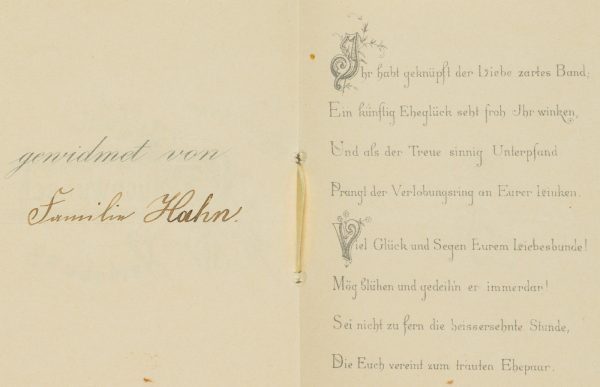 gewidmet von
Familie Hahn.
Ihr habt geknüpft der Liebe zartes Band;
Ein künftig Eheglück seht froh Ihr winken,
Und als der Treue sinnig Unterpfand
Prangt der Verlobungsring an Eurer Linken.
Viel Glück und Segen Eurem Liebesbunde!
Mög blühen und gedeih'n er immerdar!
Sei nicht zu fern die heissersehnte Stunde,
Die Euch vereint zum trauten Ehepaar.